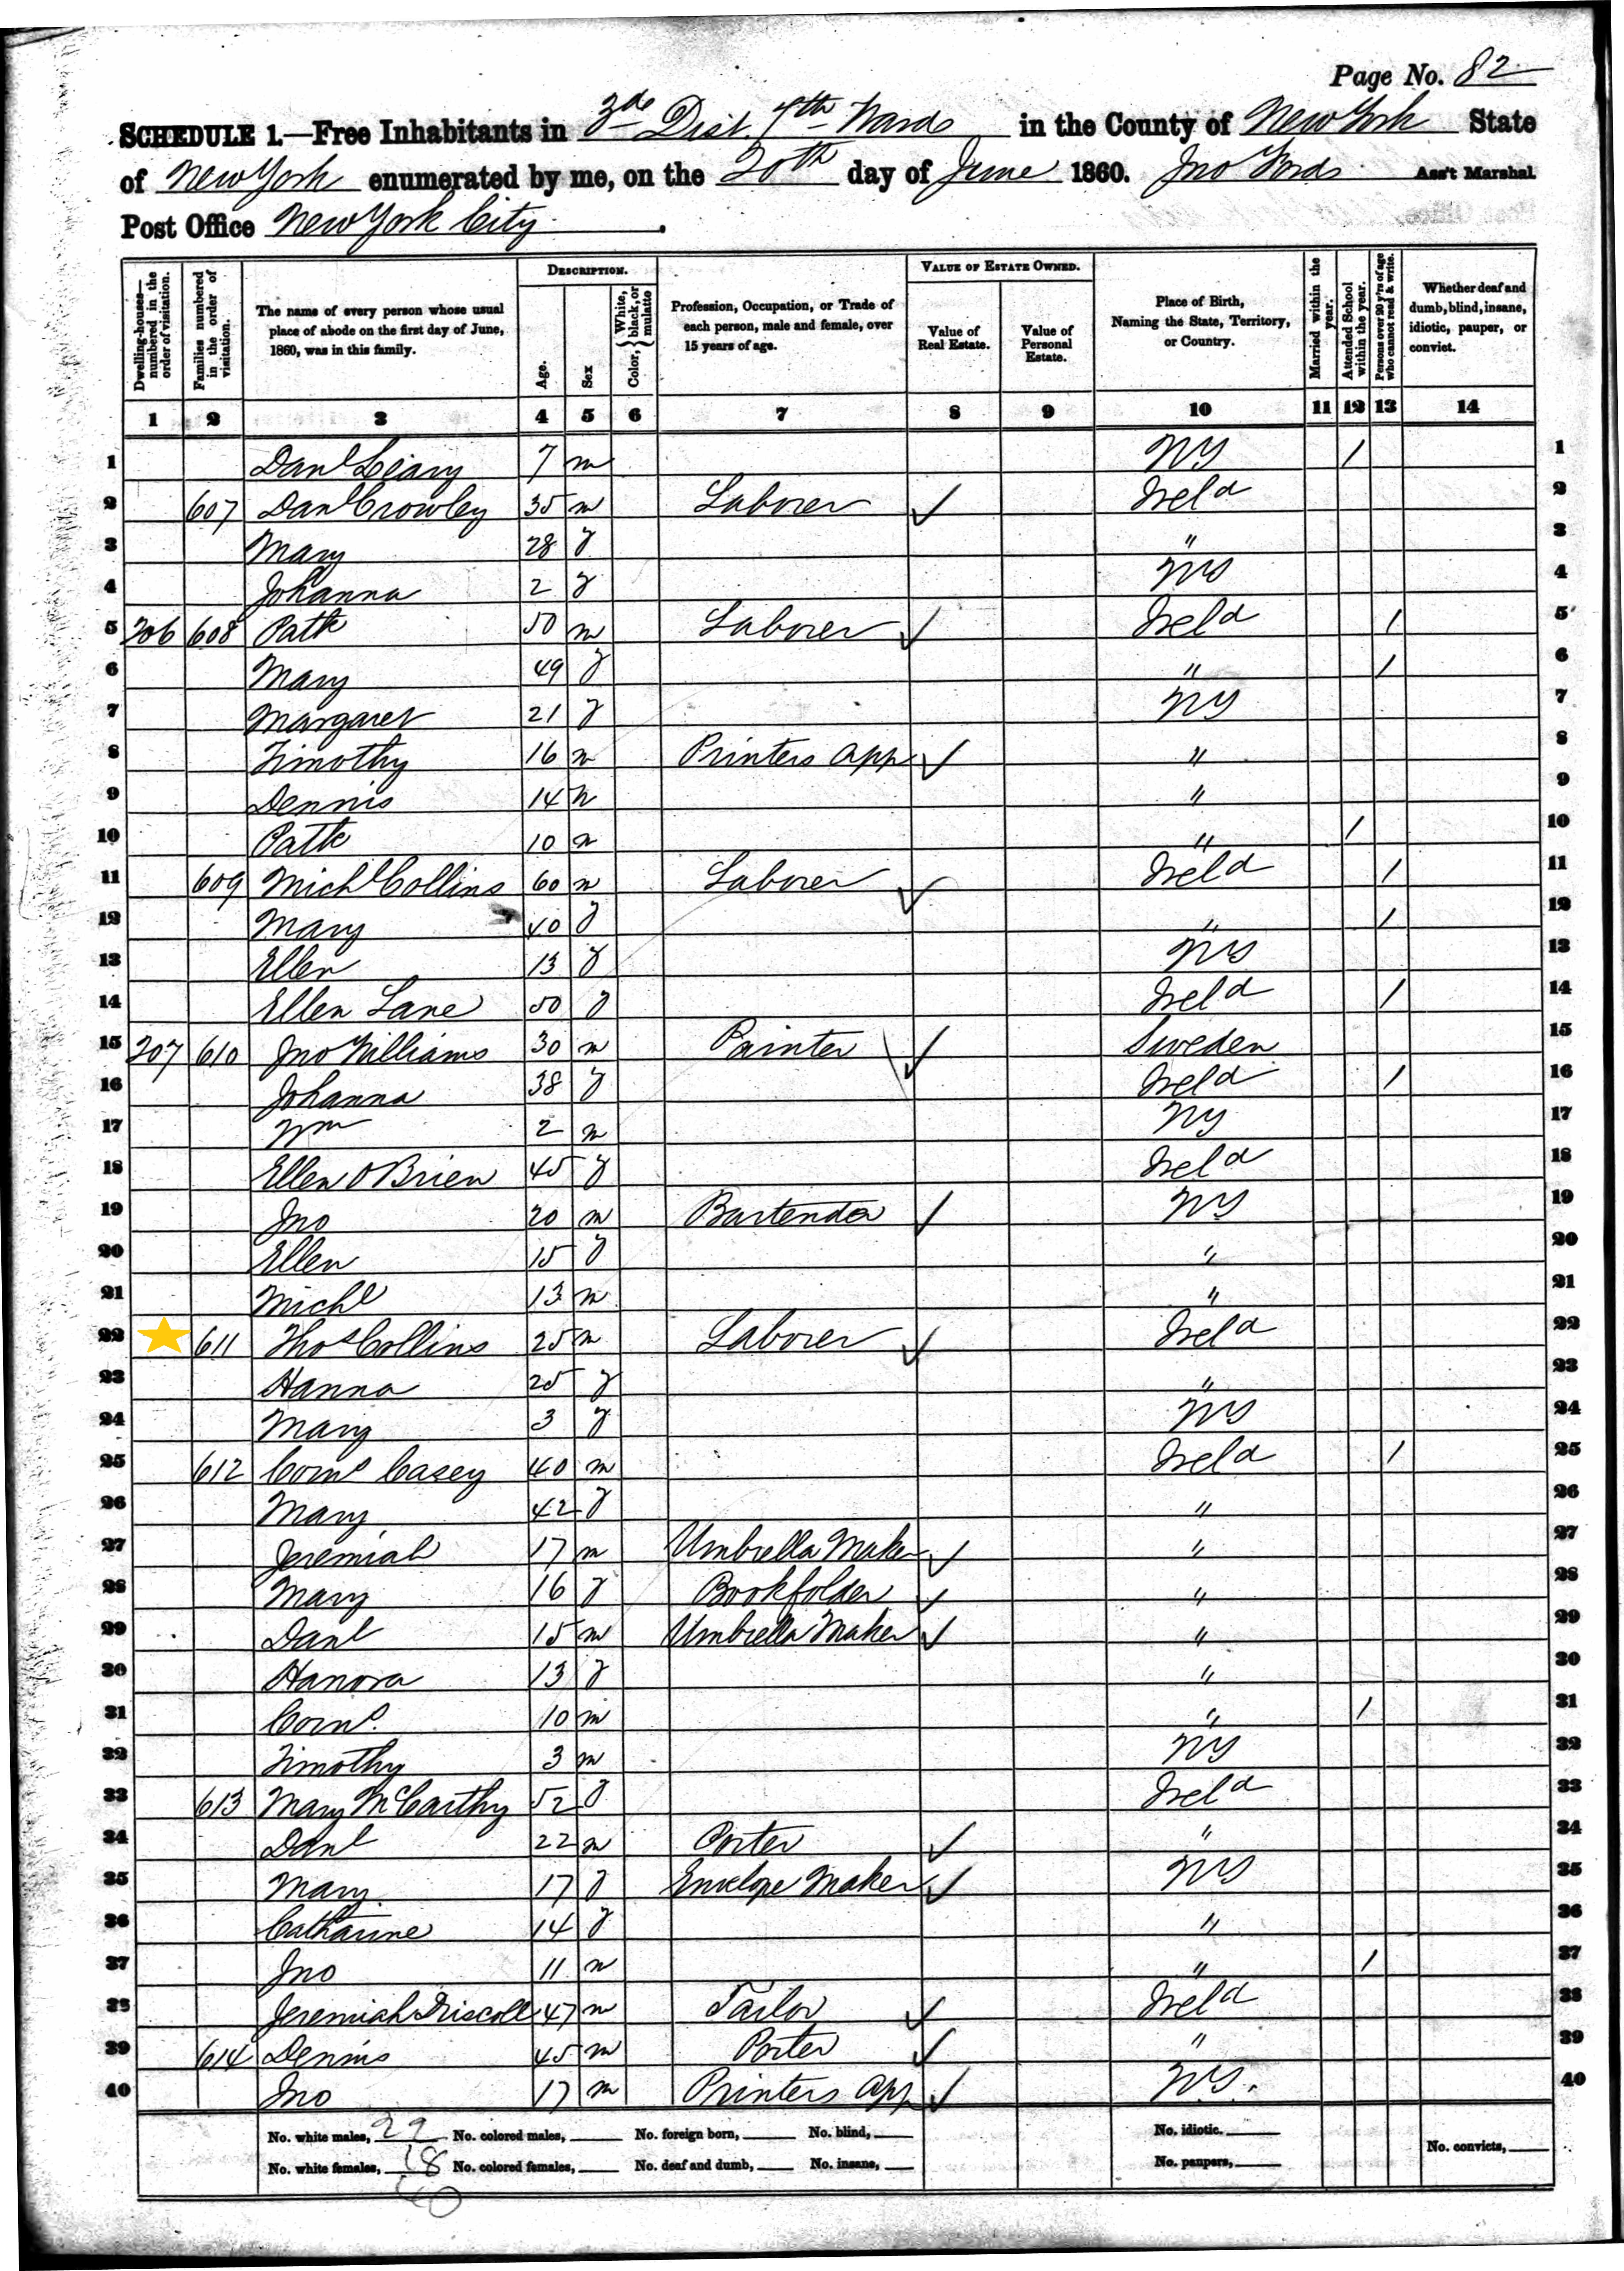 Page No. 82
SCHEDULE 1.—Free Inhabitants in 3d Dist. 4th Ward in the County of New York State
of New York enumerated by me, on the 20th day of June 1860. Jno Fords Ass't Marshal
Post Office New York City.
Dwelling-houses—numbered in the order of visitation.
Families numbered in the order of visitation.
The name of every person whose usual place of abode on the first day of June, 1860, was in this family.
DESCRIPTION.
Age.
Sex
Color, White, black, or mulatto
Profession, Occupation, or Trade of each person, male and female, over 15 years of age.
VALUE OF ESTATE OWNED.
Value of Real Estate.
Value of Personal Estate.
Place of Birth, Naming the State, Territory, or Country.
Married within the year.
Attended School within the year.
Persons over 20 y'rs of age who cannot read & write.
Whether deaf and dumb, blind, insane, idiotic, pauper, or convict.
1 2 3 4 5 6 7 8 9 10 11 12 13 14
1 Danl Leary 7 m NY / 1
2 607 Danl Crowley 35 m Laborer ✓ Ireld 2
3 Mary 28 f " 3
4 Johanna 2 f NY 4
5 206 608 Patk 50 m Laborer ✓ Ireld / 5
6 Mary 49 f " / 6
7 Margaret 21 f NY 7
8 Timothy 16 m Printers App ✓ " 8
9 Dennis 14 m " 9
10 Patk 10 m " / 10
11 609 Michl Collins 60 m Laborer ✓ Ireld / 11
12 Mary 40 f " / 12
13 Ellen 13 f NY 13
14 Ellen Lane 50 f Ireld / 14
15 207 610 Jno Williams 30 m Painter ✓ Sweden 15
16 Johanna 38 f Ireld / 16
17 Wm 2 m NY 17
18 Ellen O Brien 45 f Ireld 18
19 Jno 20 m Bartender ✓ NY 19
20 Ellen 15 f " 20
21 Michl 13 m " 21
22 611 Thos Collins 25 m Laborer ✓ Ireld 22
23 Hanna 25 f " 23
24 Mary 3 f NY 24
25 612 Corns Casey 40 m Ireld / 25
26 Mary 42 f " 26
27 Jeremiah 17 m Umbrella Maker ✓ " 27
28 Mary 16 f Bookfolder ✓ " 28
29 Danl 15 m Umbrella Maker ✓ " 29
30 Hanora 13 f " 30
31 Corns. 10 m " / 31
32 Timothy 3 m NY 32
33 613 Mary McCarthy 52 f Ireld 33
34 Danl 22 m Porter ✓ " 34
35 Mary 17 f Envelope Maker ✓ NY 35
36 Catharine 14 f " 36
37 Jno 11 m " / 37
38 Jeremiah Driscoll 47 m Tailor ✓ Ireld 38
39 614 Dennis 45 m Porter ✓ " 39
40 Jno 17 m Printers App ✓ NY. 40
No. white males, 22 No. colored males, No. foreign born, No. blind, No. idiotic.
No. white females, 18 No. colored females, No. deaf and dumb, No. insane, No. paupers, No. convicts,
40